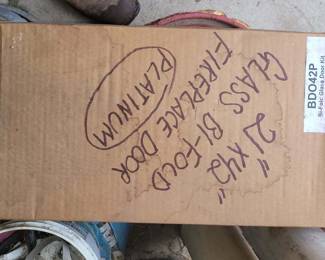 21" X 42"
GLASS BI-FOLD
FIREPLACE DOOR
PLATINUM
BDO42P
Bi-Fold Glass Door Kit